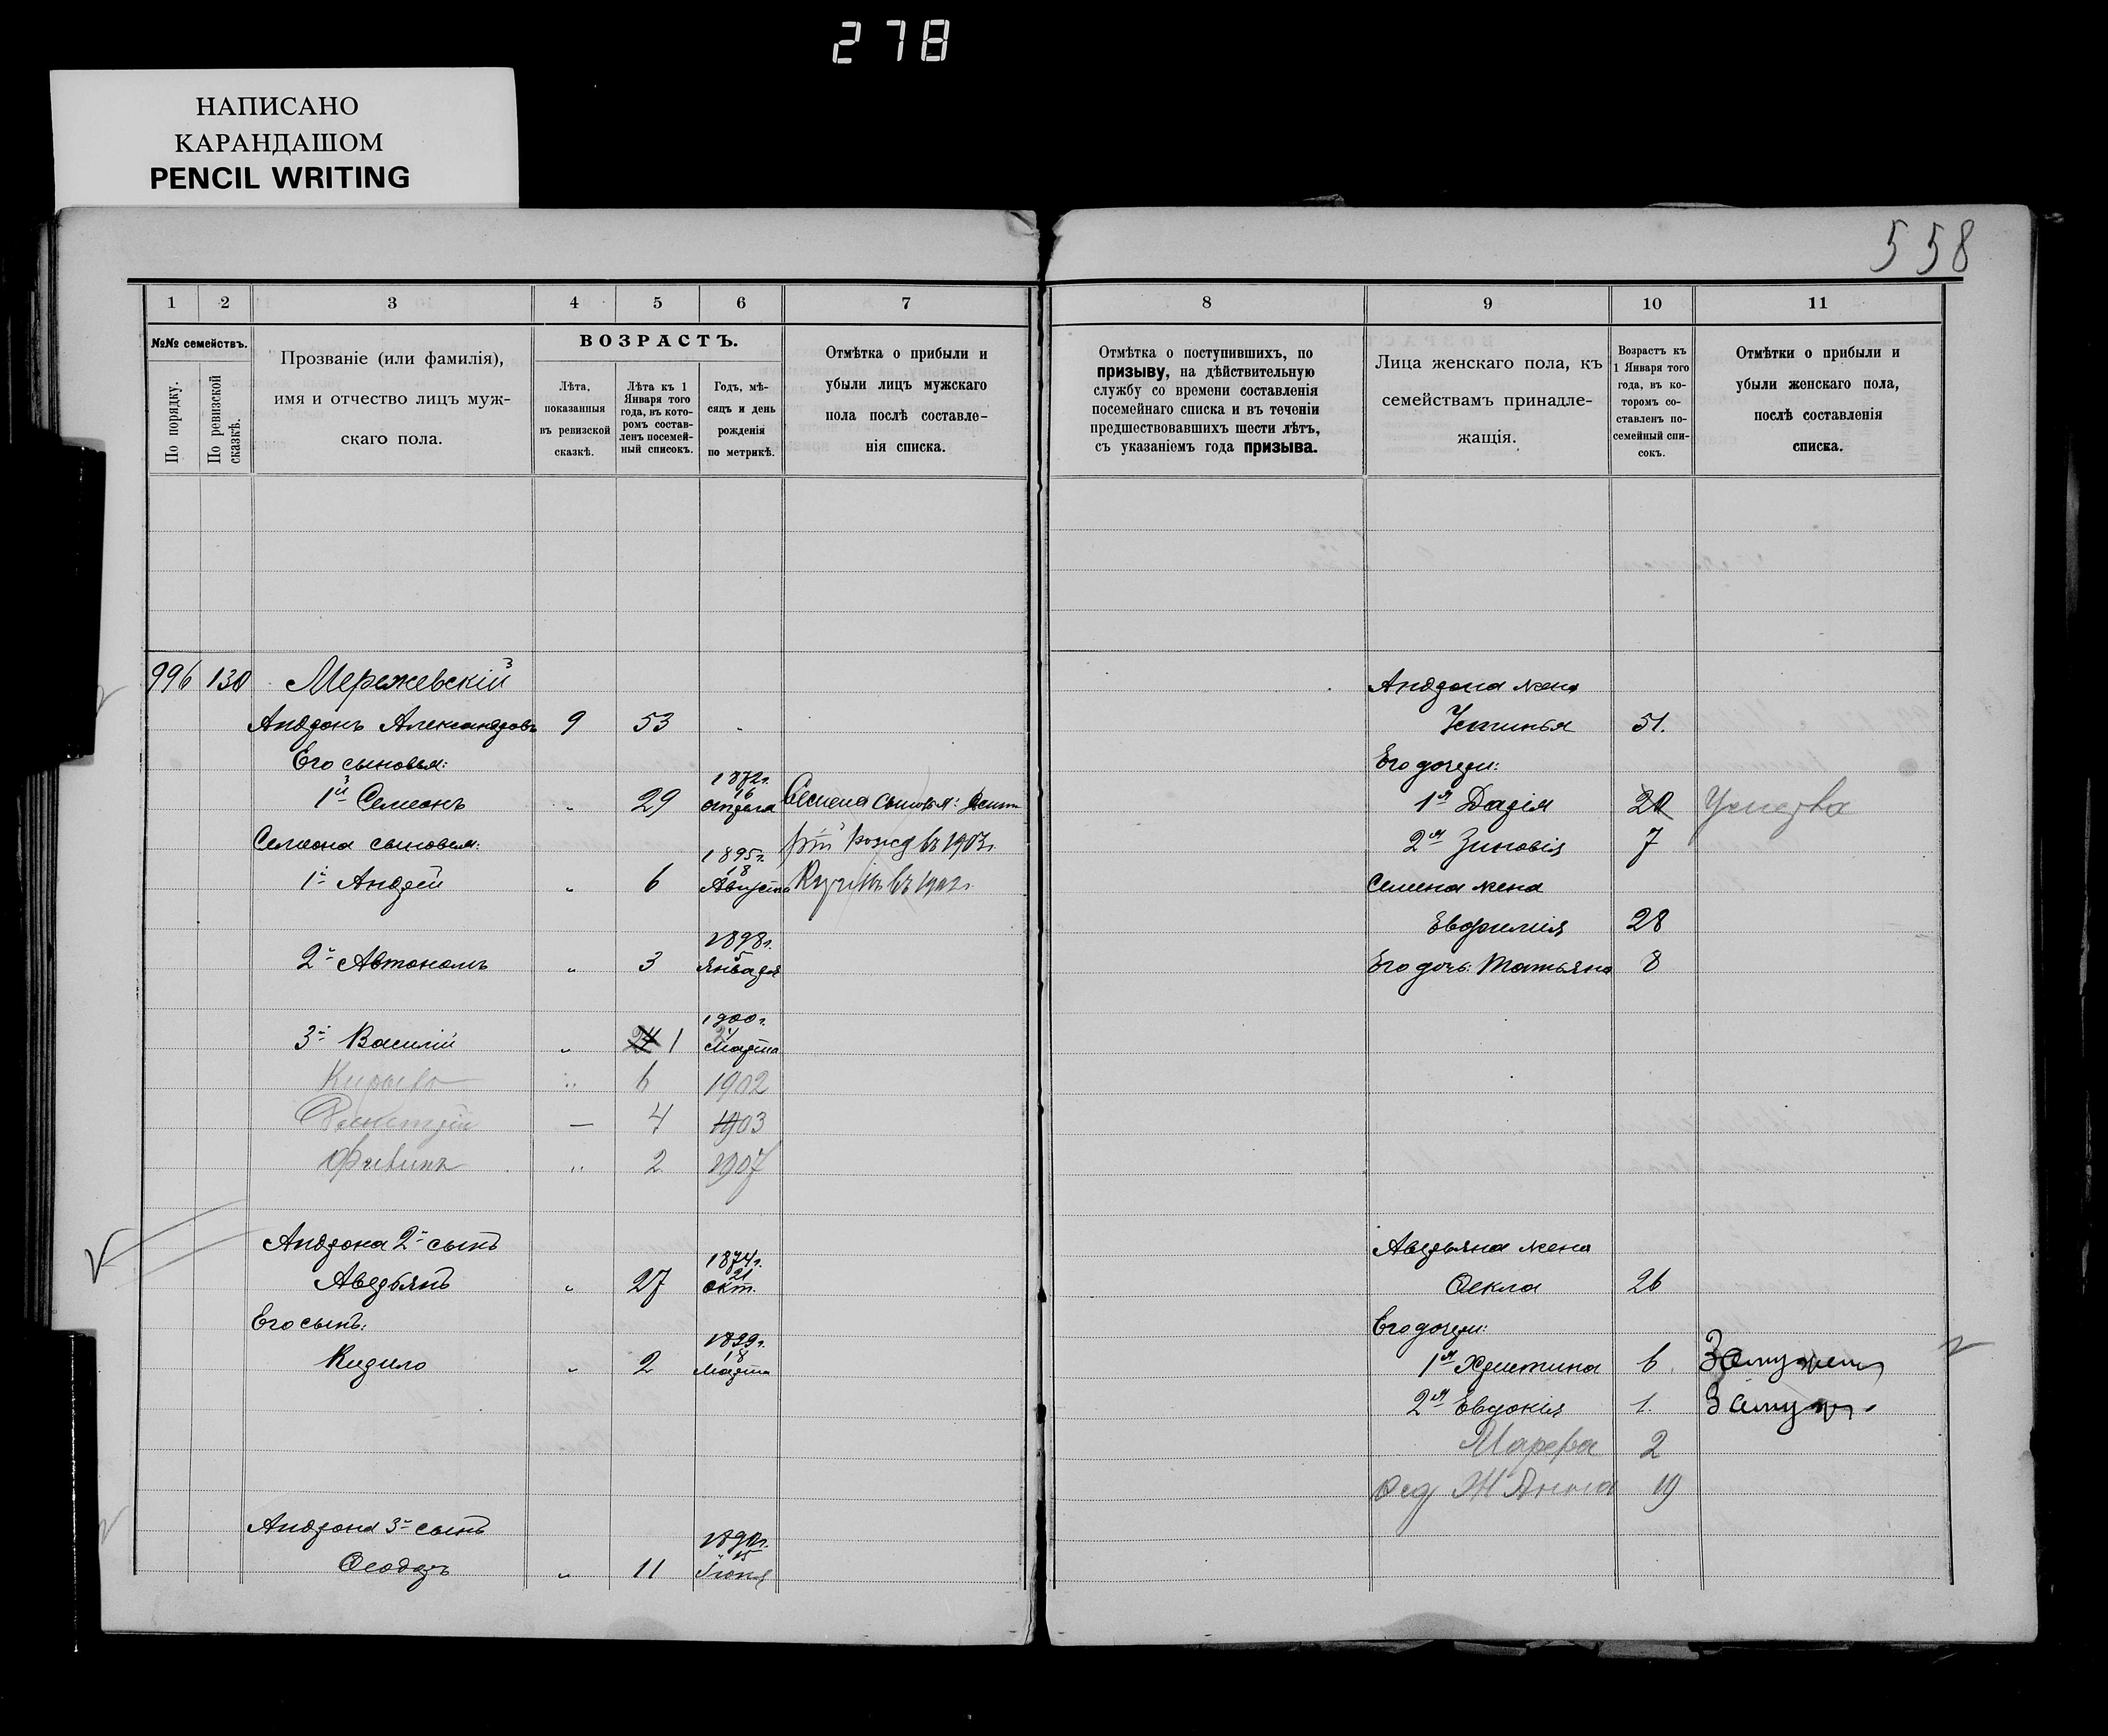 278
НАПИСАНО
КАРАНДАШОМ
PENCIL WRITING
558
1 2 3 4 5 6 7
№№ семействъ.
По порядку.
По ревизской сказкѣ.
Прозваніе (или фамилія),
имя и отчество лицъ муж-
скаго пола.
ВОЗРАСТЪ.
Лѣта,
показанныя
въ ревизской
сказкѣ.
Лѣта къ 1
Января того
года, въ кото-
ромъ состав-
ленъ посемей-
ный списокъ.
Годъ, мѣ-
сяцъ и день
рожденія
по метрикѣ.
Отмѣтка о прибыли и
убыли лицъ мужскаго
пола послѣ составле-
нія списка.
996 130 Мережевскій
Андронъ Александровъ 9 53
Его сыновья:
1872г.
16
1й Семеонъ " 29 апреля Семена сыновья:
Семеона сыновья: рожд въ 1903г.
1895г.
18
1й Андрей " 6 Августа въ 1902г.
1898г.
5
2й Автономъ " 3 Января
1900г.
3й Василій " 24 1 Марта
" 6 1902
— 4 1903
" 2 1907
Андрона 2й сынъ
1874г.
21
Аведьянъ " 27 окт.
Его сынъ:
1899г.
18
Кирило " 2 Марта
Андрона 3й сынъ
1890г.
15
Ѳеодоръ " 11 Іюня
8 9 10 11
Отмѣтка о поступившихъ, по
призыву, на дѣйствительную
службу со времени составленія
посемейнаго списка и въ теченіи
предшествовавшихъ шести лѣтъ,
съ указаніемъ года призыва.
Лица женскаго пола, къ
семействамъ принадле-
жащія.
Возрастъ къ
1 Января того
года, въ ко-
торомъ со-
ставленъ по-
семейный спи-
сокъ.
Отмѣтки о прибыли и
убыли женскаго пола,
послѣ составленія
списка.
Андрона жена
Устинья 51.
Его дочери:
1я Дарія 20
2я Зиновія 7
Семена жена
Евфимія 28
Его дочь: Татьяна 8
Аведьяна жена
Ѳекла 26
Его дочери:
1я Христина 6 Замужем
2я Евдокія 1. Замуж.
Марфа 2
Ѳед Ж Анна 19